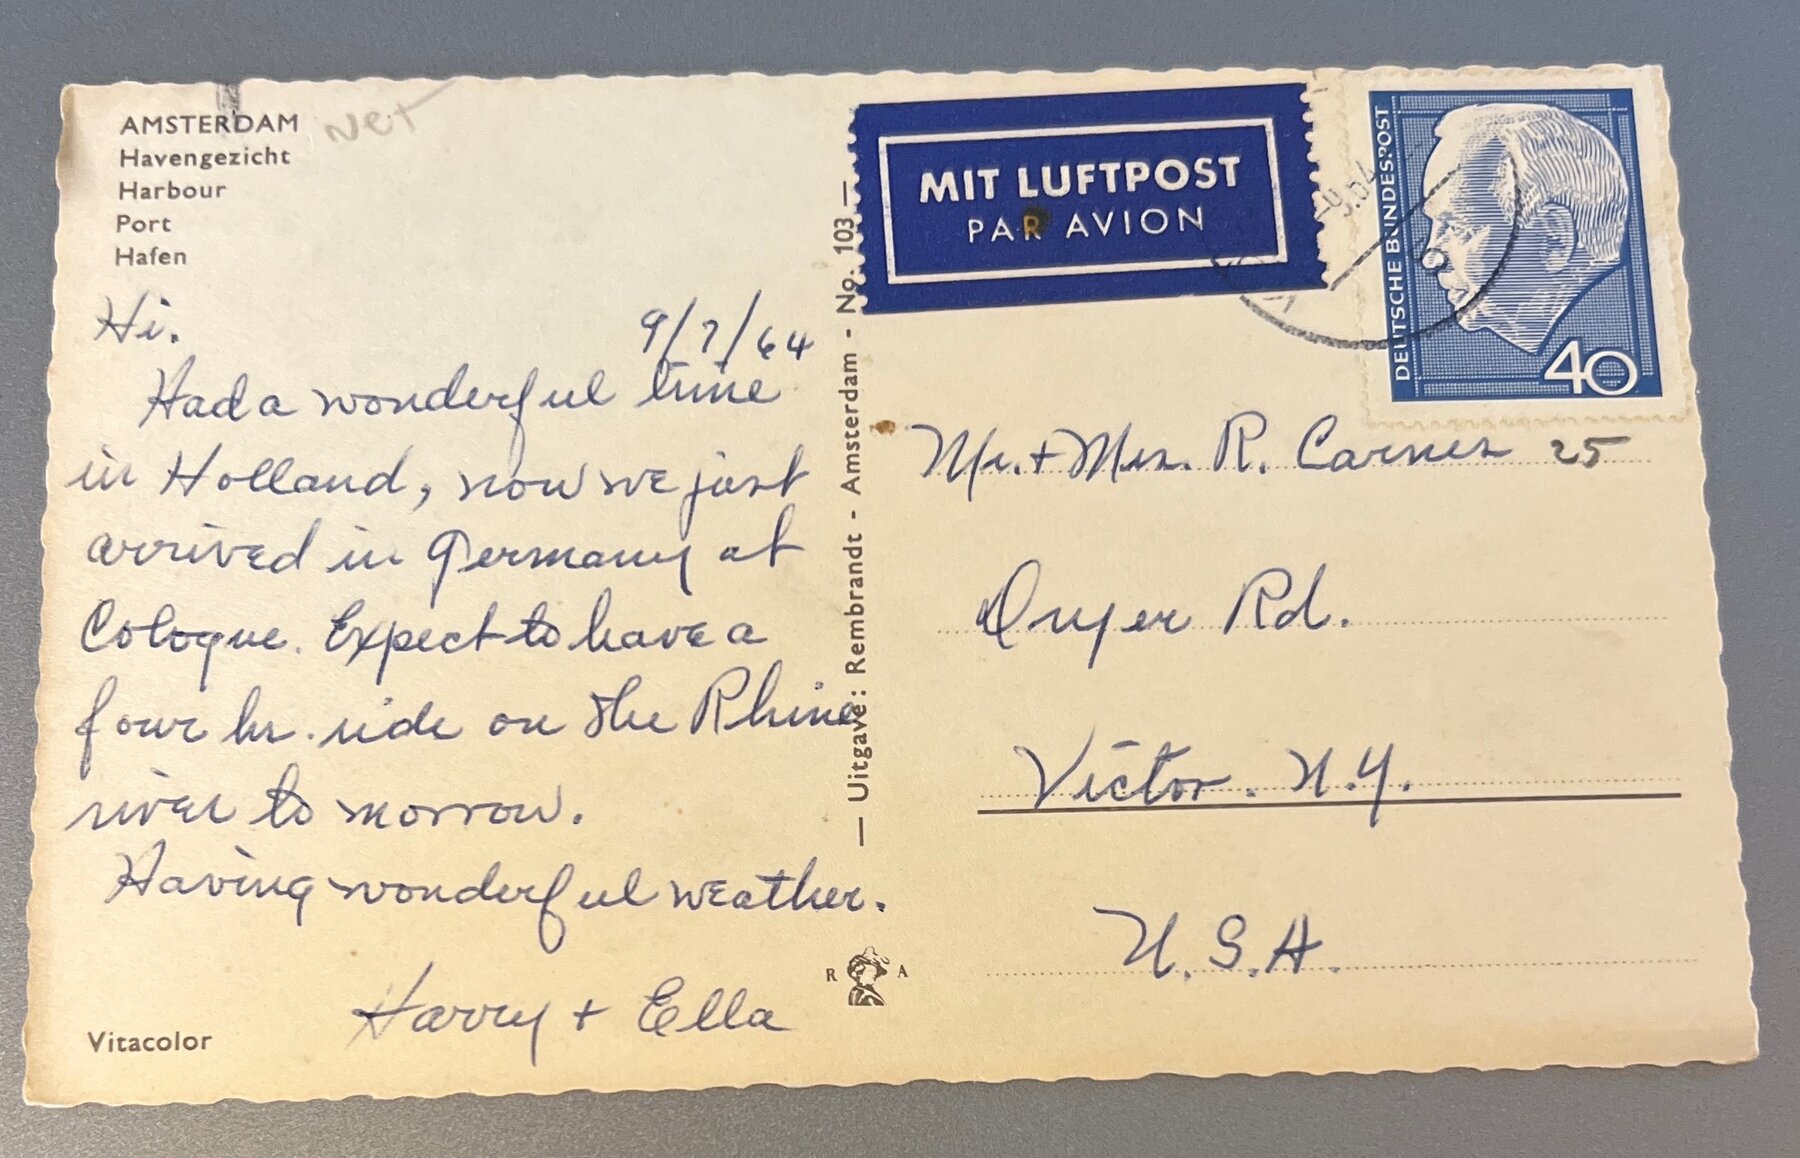 AMSTERDAM
Havengezicht
Harbour
Port
Hafen
net
Hi.
9/7/64
Had a wonderful time
in Holland, now we just
arrived in Germany at
Cologne. Expect to have a
four hr. ride on the Rhine
river to morrow.
Having wonderful weather.
Harry + Ella
Vitacolor
— Uitgave: Rembrandt - Amsterdam - No. 103 —
R A
MIT LUFTPOST
PAR AVION
DEUTSCHE BUNDESPOST
40
9.64
Mr. + Mrs. R. Carner 25
Dryer Rd.
Victor. N.Y.
U.S.A.